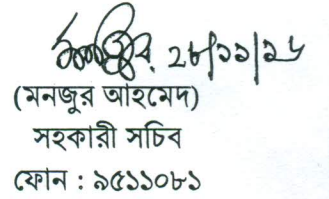 ২৮/১১/১৬
(মনজুর আহমেদ)
সহকারী সচিব
ফোন : ৯৫১১০৮১